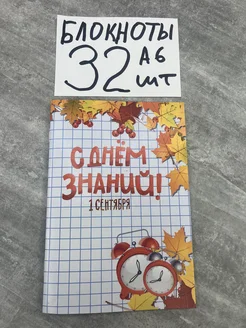 БЛОКНОТЫ
32 А6
ШТ
С ДНЁМ
ЗНАНИЙ!
1 СЕНТЯБРЯ